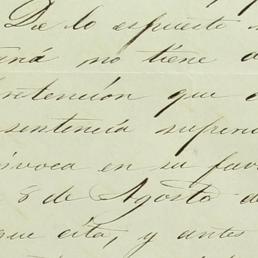 De lo espuesto
ná no tiene
intencion que
sentencia suprem
invoca en su fav
8 de Agosto de
que cita, y antes